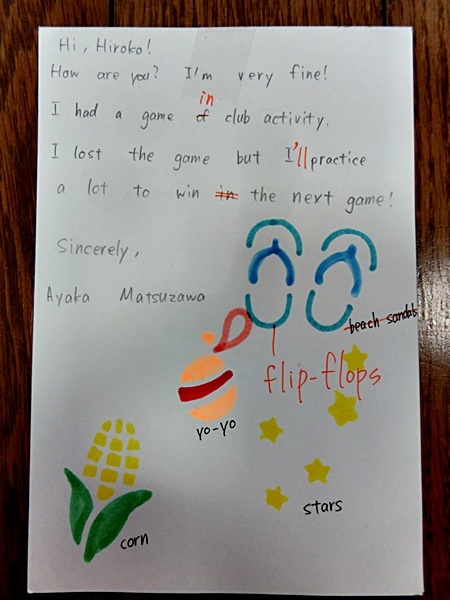 Hi, Hiroko!
How are you? I'm very fine!
in
I had a game of club activity.
I lost the game but I'll practice
a lot to win in the next game!
Sincerely,
Ayaka Matsuzawa
beach sandals
flip-flops
yo-yo
stars
corn